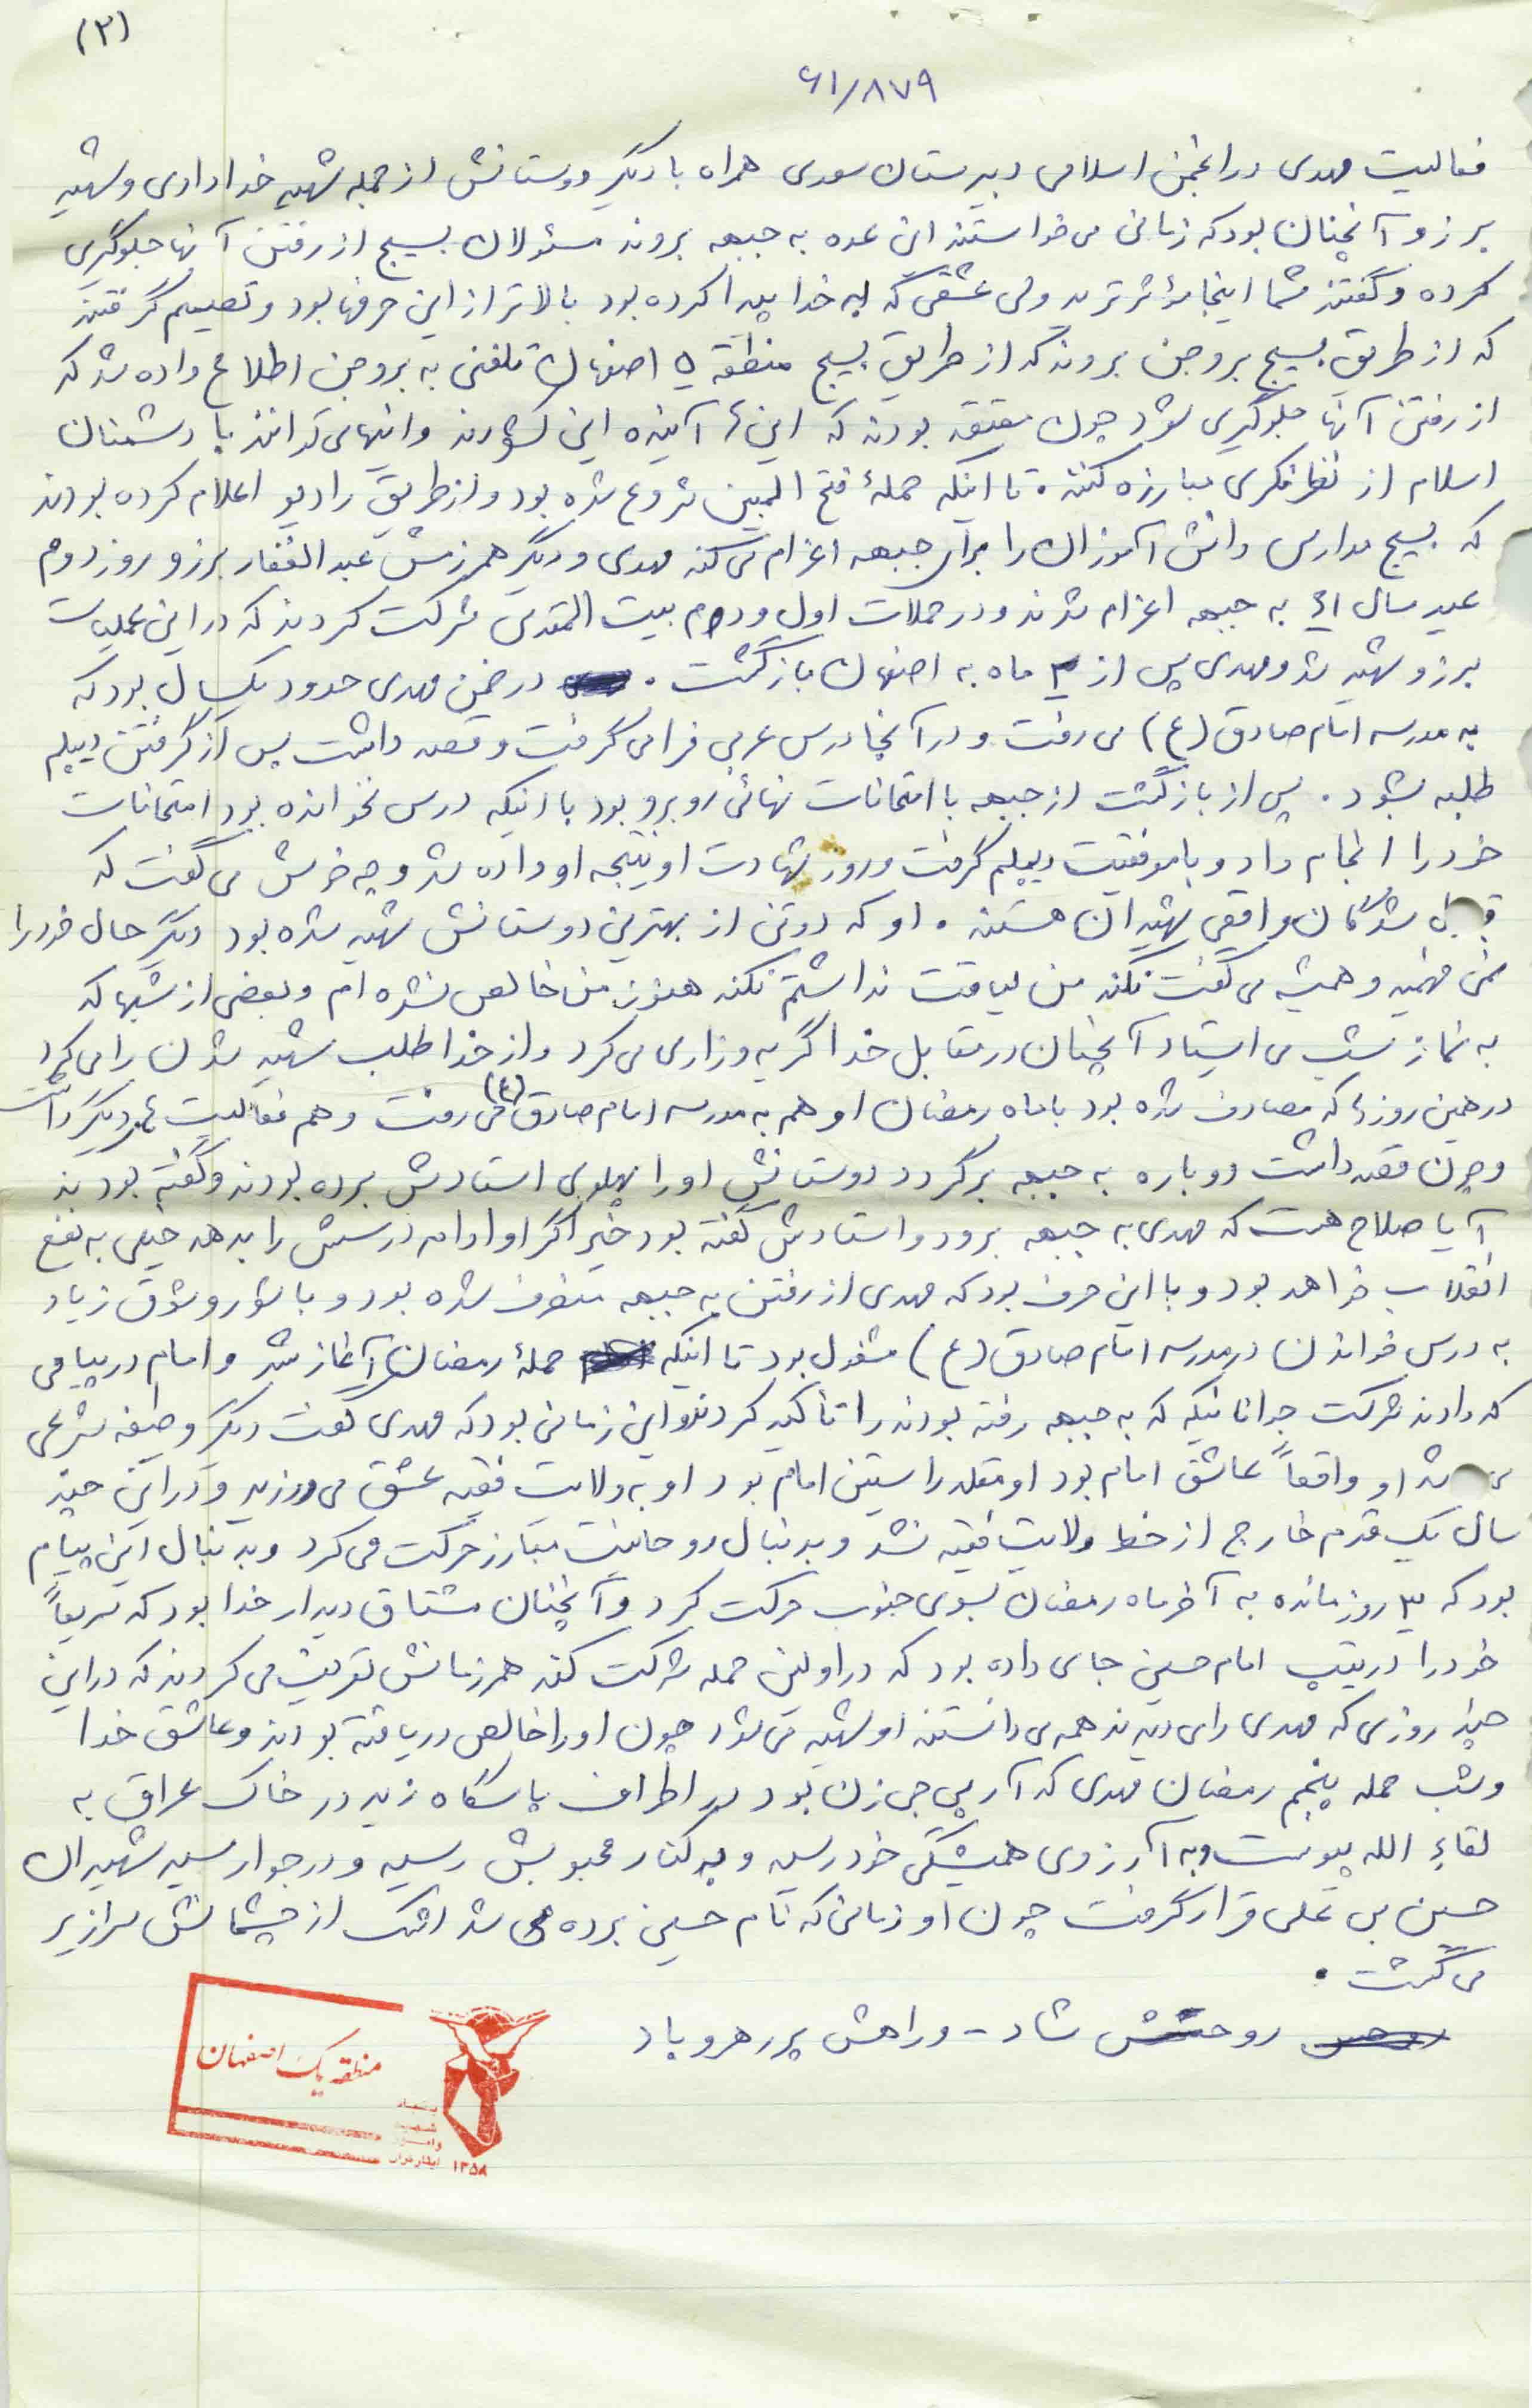 (۲)
۶۱/۸۷۹
فعالیت مهدی در انجمن اسلامی دبیرستان سعدی همراه با دیگر دوستانش از جمله شهید خدادادی و شهید
برزو آنچنان بود که زمانی می خواستند این عده به جبهه بروند مسئولان بسیج از رفتن آنها جلوگیری
کرده و گفتند شما اینجا مؤثرترید ولی عشقی که به خدا پیدا کرده بود بالاتر از این حرفها بود و تصمیم گرفتند
که از طریق بسیج بروجن بروند که از طریق بسیج منطقه ۵ اصفهان تلفنی به بروجن اطلاع داده شد که
از رفتن آنها جلوگیری شود چون معتقد بودند که اینها آینده این کشورند و اینها می توانند با دشمنان
اسلام از نظر فکری مبارزه کنند. تا اینکه حملهٔ فتح المبین شروع شده بود و از طریق رادیو اعلام کرده بودند
که بسیج مدارس دانش آموزان را برای جبهه اعزام می کند مهدی و دیگر همرزمش عبدالغفار برزو روز دوم
عید سال ۶۱ به جبهه اعزام شدند و در حملات اول و دوم بیت المقدس شرکت کردند که در این عملیات
برزو شهید شد و مهدی پس از ۳ ماه به اصفهان بازگشت. در ضمن مهدی حدود یکسال بود که
به مدرسه امام صادق (ع) می رفت و در آنجا درس عربی فرا می گرفت و قصد داشت پس از گرفتن دیپلم
طلبه بشود. پس از بازگشت از جبهه با امتحانات نهائی روبرو بود با اینکه درس نخوانده بود امتحانات
خود را انجام داد و با موفقیت دیپلم گرفت و روز شهادت او نتیجه او داده شد و چه خوش می گفت که
قبول شدگان واقعی شهیدان هستند. او که دو تن از بهترین دوستانش شهید شده بود دیگر حال خود را
نمی فهمید و همیشه می گفت نکند من لیاقت نداشتم نکند هنوز من خالص نشده ام و بعضی از شبها که
به نماز شب می ایستاد آنچنان در مقابل خدا گریه و زاری می کرد و از خدا طلب شهید شدن را می کرد
در همین روزها که مصادف شده بود با ماه رمضان او هم به مدرسه امام صادق (ع) می رفت و هم فعالیت های دیگر داشت
و چون قصد داشت دوباره به جبهه برگردد دوستانش او را پهلوی استادش برده بودند و گفته بودند
آیا صلاح هست که مهدی به جبهه برود و استادش گفته بود خیر اگر او ادامه درسش را بدهد خیلی به نفع
انقلاب خواهد بود و با این حرف بود که مهدی از رفتن به جبهه منصرف شده بود و با شور و شوق زیاد
به درس خواندن در مدرسه امام صادق (ع) مشغول بود تا اینکه حملهٔ رمضان آغاز شد و امام در پیامی
که دادند شرکت جوانانیکه که به جبهه رفته بودند را تأکید کردند و این زمانی بود که مهدی گفت دیگر وظیفه شرعی
شد او واقعاً عاشق امام بود او مقلد راستین امام بود او به ولایت فقیه عشق می ورزید و در این چند
سال یک قدم خارج از خط ولایت فقیه نشد و بدنبال روحانیت مبارز حرکت می کرد و بدنبال این پیام
بود که ۳ روز مانده به آخر ماه رمضان بسوی جنوب حرکت کرد و آنچنان مشتاق دیدار خدا بود که سریعاً
خود را در تیپ امام حسین جای داده بود که در اولین حمله شرکت کند همرزمانش تعریف می کردند که در این
چند روزی که مهدی را می دیدند همه می دانستند او شهید می شود چون او را خالص دریافته بودند و عاشق خدا
و شب حمله پنجم رمضان مهدی که آر پی جی زن بود در اطراف پاسگاه زید در خاک عراق به
لقاء الله پیوست و به آرزوی همیشگی خود رسید و به کنار محبوبش رسید و در جوار سید شهیدان
حسین بن علی قرار گرفت چون او زمانی که نام حسین برده می شد اشک از چشمانش سرازیر
می گشت.
روحش شاد - و راهش پر رهرو باد
منطقه یک اصفهان
بنیاد
شهید
و امور
ایثارگران ۱۳۵۸